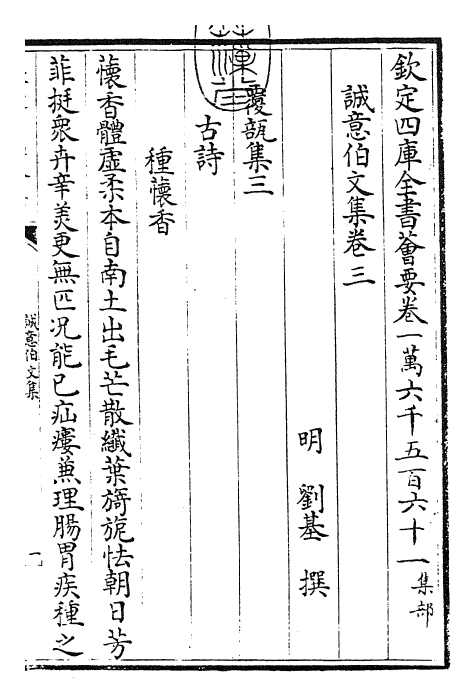 欽定四庫全書薈要卷一萬六千五百六十一集部
誠意伯文集卷三
明 劉基 撰
覆瓿集三
古詩
種懷香
懷香體虛柔本自南土出毛芒散纎葉旖旎怯朝日芳
菲挺衆卉辛美更無匹況能已疝瘻兼理腸胃疾種之
誠意伯文集
一